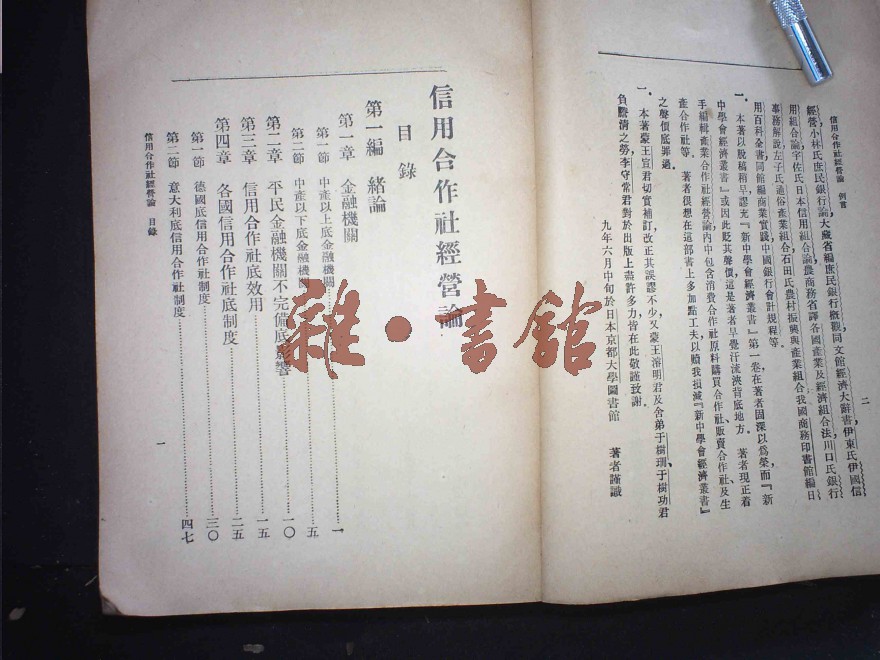 信用合作社經營論 例言
二
經營，小林氏庶民銀行論，大藏省編庶民銀行槪觀，同文館經濟大辭書，伊東氏伊國信
用組合論，宇佐氏日本信用組合論，農商務省譯各國產業及經濟組合法，川口氏銀行
事務解說，左子氏通俗產業組合，石田氏農村振興與產業組合，我國商務印書館編日
用百科全書，同館編商業實踐，中國銀行會計規程等．
一．本著以脫稿稍早，謬充『新中學會經濟叢書』第一卷，在著者固深以爲榮，而『新
中學會經濟叢書』或因此貶其聲價，這是著者早覺汗流浹背底地方．著者現正着
手編輯產業合作社經營論，內中包含消費合作社，原料購買合作社，販賣合作社及生
產合作社等．著者很想在這部書上多加點工夫，以贖我損減『新中學會經濟叢書』
之聲價底罪過．
一．本著蒙王宣君切實補訂，改正其誤謬不少，又蒙王溶明君及舍弟于樹珊，于樹功君
負謄淸之勞，李守常君對於出版上盡許多力，皆在此敬謹致謝．
九年六月中旬於日本京都大學圖書館 著者謹識
信用合作社經營論
目錄
第一編 緒論
第一章 金融機關……一
第一節 中產以上底金融機關……一
第二節 中產以下底金融機關……五
第二章 平民金融機關不完備底影響……一〇
第三章 信用合作社底效用……一五
第四章 各國信用合作社底制度……二五
第一節 德國底信用合作社制度……三〇
第二節 意大利底信用合作社制度……四七
信用合作社經營論 目錄
一
雜·書館